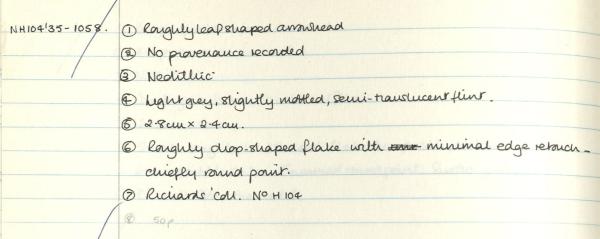 NH104'35-1058. ① Roughly leaf shaped arrowhead
② No provenance recorded
③ Neolithic
④ Light grey, slightly mottled, semi-translucent flint.
⑤ 2.8cm x 2.4cm.
⑥ Roughly drop-shaped flake with minimal edge retouch -
chiefly round point.
⑦ Richards' Coll. No H 104
⑧ 50p